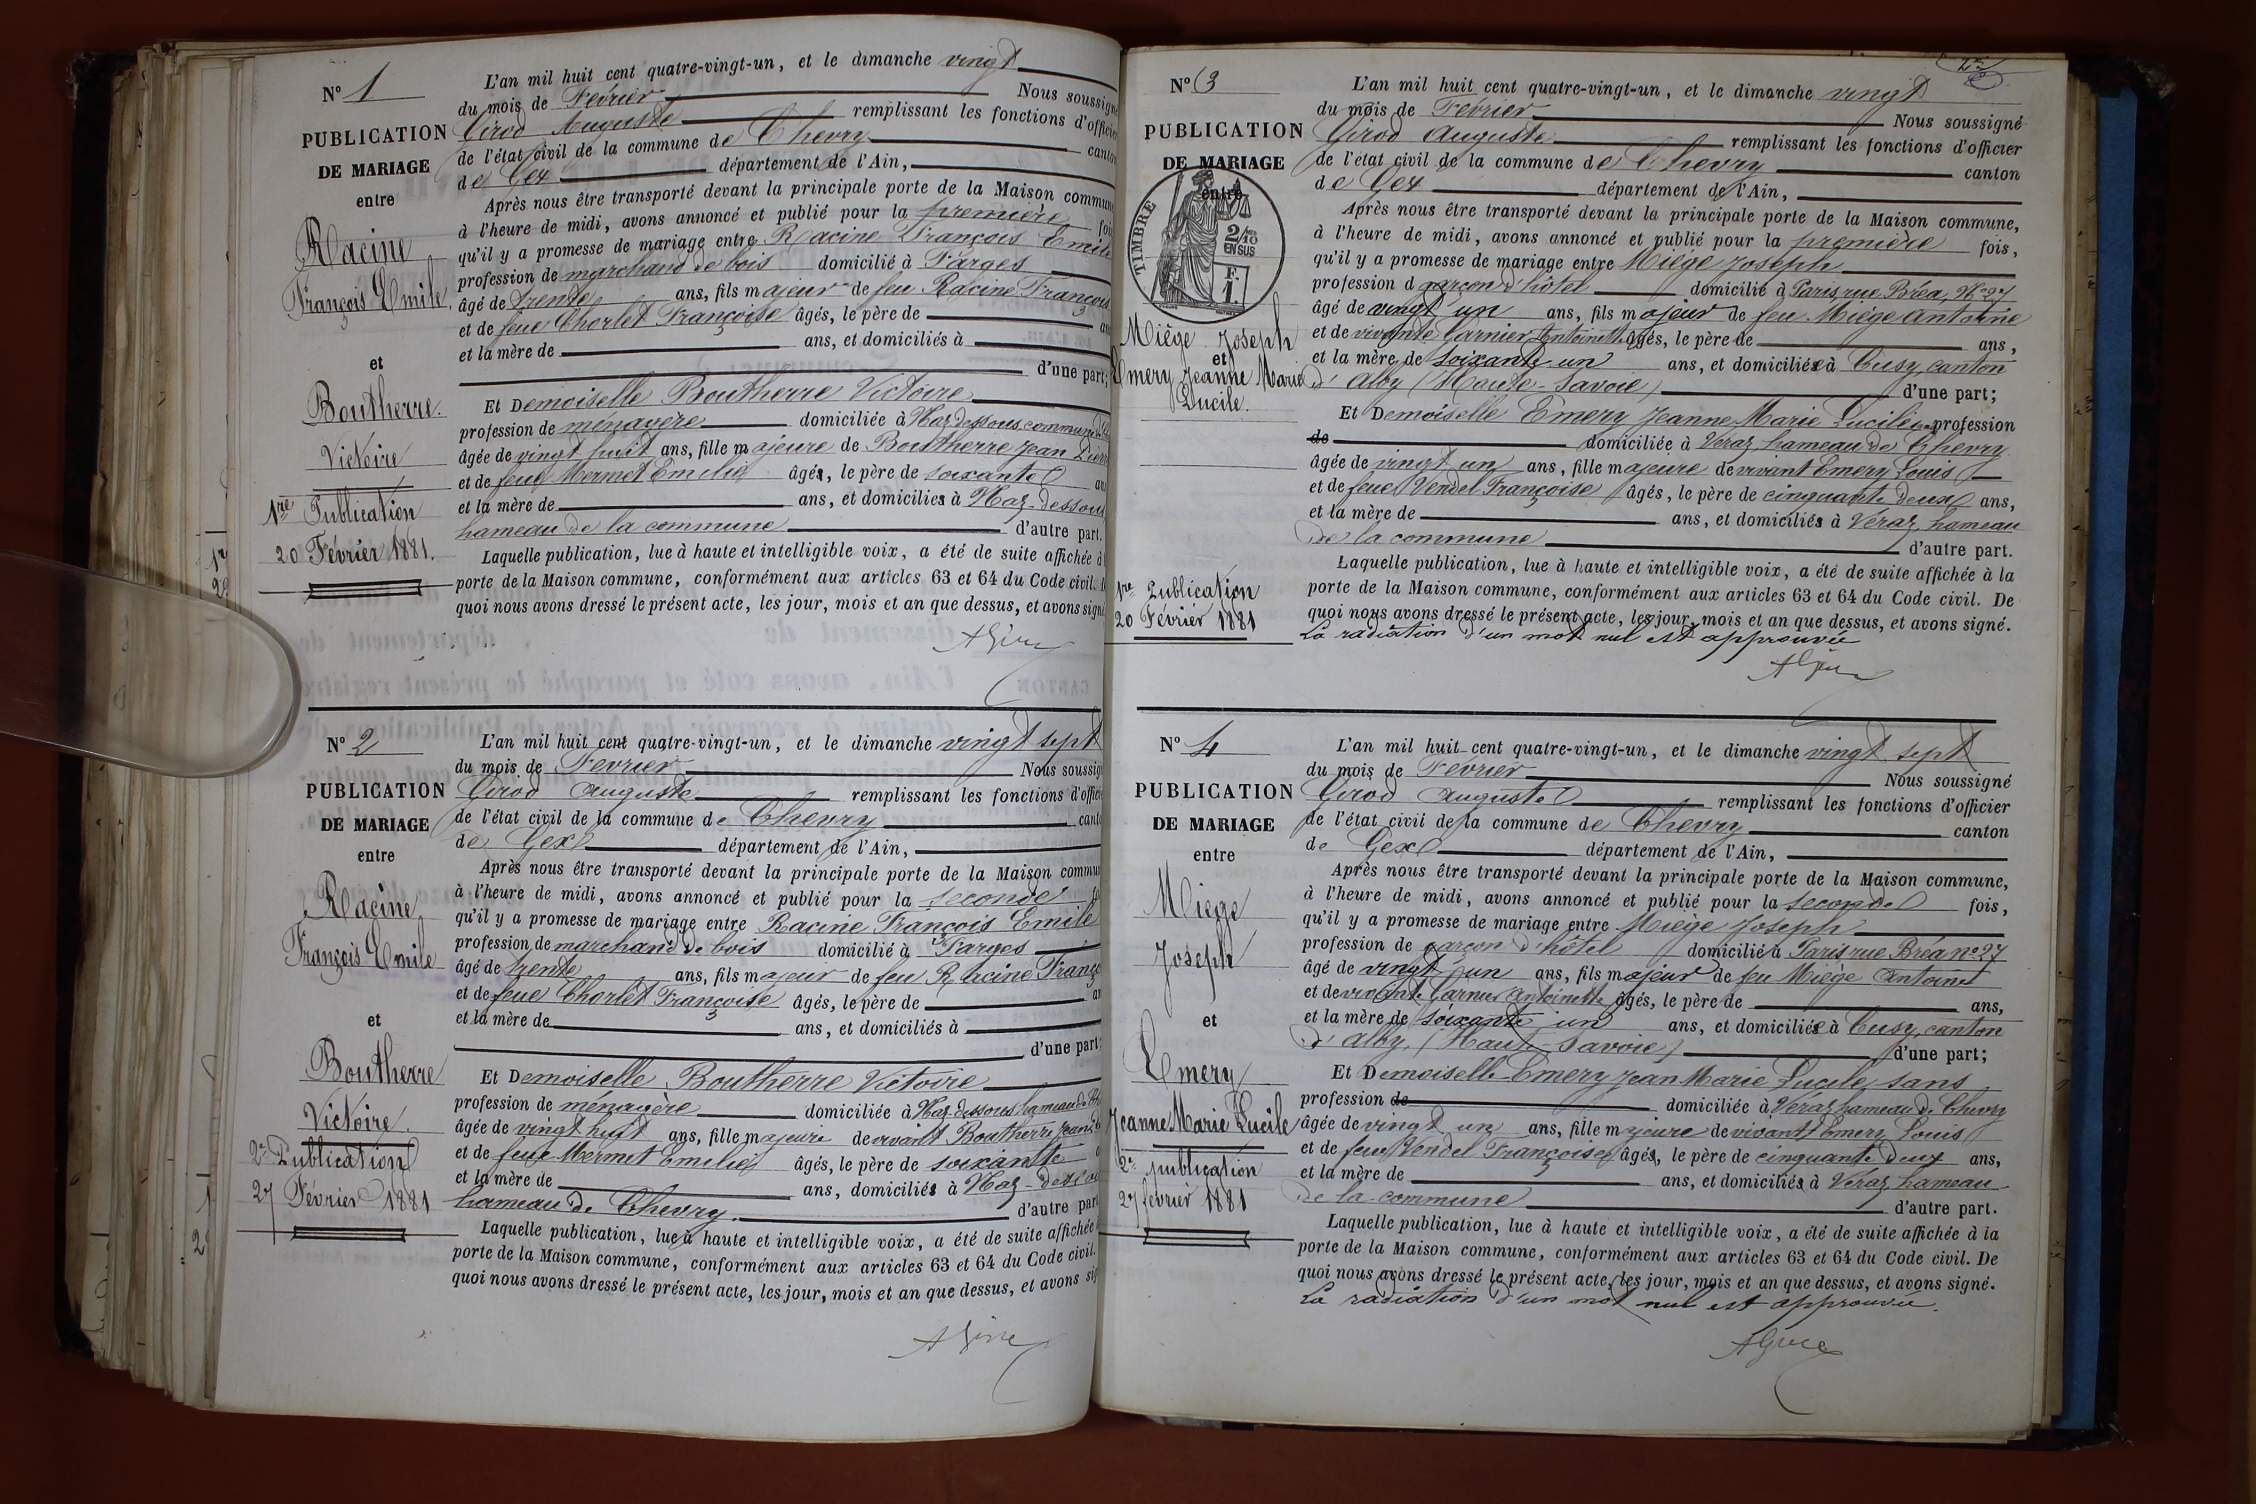 N° 1
PUBLICATION
DE MARIAGE
entre
Racine
François Emile
et
Boutherre
Victoire
1re Publication
20 Février 1881.
L'an mil huit cent quatre-vingt-un, et le dimanche vingt
du mois de Février Nous soussigné
Girod Auguste remplissant les fonctions d'officier
de l'état civil de la commune de Chevry canton
de Gex département de l'Ain,
Après nous être transporté devant la principale porte de la Maison commune
à l'heure de midi, avons annoncé et publié pour la première fois
qu'il y a promesse de mariage entre Racine François Emile
profession de marchand de bois domicilié à Farges
âgé de trente ans, fils majeur de feu Racine François
et de feue Chorlet Françoise âgés, le père de ans
et la mère de ans, et domiciliés à
d'une part;
Et Demoiselle Boutherre Victoire
profession de ménagère domiciliée à Naz-dessous commune
âgée de vingt huit ans, fille majeure de Boutherre Jean Pierre
et de feue Mermet Emélie âgés, le père de soixante ans
et la mère de ans, et domiciliés à Naz-dessous
hameau de la commune d'autre part.
Laquelle publication, lue à haute et intelligible voix, a été de suite affichée à
porte de la Maison commune, conformément aux articles 63 et 64 du Code civil. De
quoi nous avons dressé le présent acte, les jour, mois et an que dessus, et avons signé
N° 2
PUBLICATION
DE MARIAGE
entre
Racine
François Emile
et
Boutherre
Victoire.
2e Publication
27 Février 1881
L'an mil huit cent quatre-vingt-un, et le dimanche vingt sept
du mois de Février Nous soussigné
Girod Auguste remplissant les fonctions d'officier
de l'état civil de la commune de Chevry canton
de Gex département de l'Ain,
Après nous être transporté devant la principale porte de la Maison commune
à l'heure de midi, avons annoncé et publié pour la seconde fois
qu'il y a promesse de mariage entre Racine François Emile
profession de marchand de bois domicilié à Farges
âgé de trente ans, fils majeur de feu Racine François
et de feue Chorlet Françoise âgés, le père de ans
et la mère de ans, et domiciliés à
d'une part;
Et Demoiselle Boutherre Victoire
profession de ménagère domiciliée à Naz-dessous hameau de
âgée de vingt huit ans, fille majeure de vivant Boutherre Jean
et de feue Mermet Emélie âgés, le père de soixante
et la mère de ans, domiciliés à Naz-dessous
hameau de Chevry. d'autre part
Laquelle publication, lue à haute et intelligible voix, a été de suite affichée
porte de la Maison commune, conformément aux articles 63 et 64 du Code civil.
quoi nous avons dressé le présent acte, les jour, mois et an que dessus, et avons signé
N° 3
PUBLICATION
DE MARIAGE
entre
TIMBRE
2/10
EN SUS
F.
1.
Miège Joseph
et
Emery Jeanne Marie
Lucile.
1re Publication
20 Février 1881
L'an mil huit cent quatre-vingt-un, et le dimanche vingt
du mois de Février Nous soussigné
Girod Auguste remplissant les fonctions d'officier
de l'état civil de la commune de Chevry canton
de Gex département de l'Ain,
Après nous être transporté devant la principale porte de la Maison commune,
à l'heure de midi, avons annoncé et publié pour la première fois,
qu'il y a promesse de mariage entre Miège Joseph
profession d garçon d'hôtel domicilié à Paris, rue Bréa, N° 27
âgé de vingt un ans, fils majeur de feu Miège Antoine
et de vivante Garnier Antoinette âgés, le père de ans,
et la mère de soixante un ans, et domiciliée à Cusy, canton
d'Alby (Haute-Savoie) d'une part;
Et Demoiselle Emery Jeanne Marie Lucile sans profession
de domiciliée à Véraz, hameau de Chevry
âgée de vingt un ans, fille majeure de vivant Emery Louis
et de feue Vendel Françoise âgés, le père de cinquante deux ans,
et la mère de ans, et domiciliés à Véraz, hameau
de la commune d'autre part.
Laquelle publication, lue à haute et intelligible voix, a été de suite affichée à la
porte de la Maison commune, conformément aux articles 63 et 64 du Code civil. De
quoi nous avons dressé le présent acte, les jour, mois et an que dessus, et avons signé.
La radiation d'un mot nul est approuvée
N° 4
PUBLICATION
DE MARIAGE
entre
Miège
Joseph
et
Emery
Jeanne Marie Lucile
2e publication
27 février 1881
L'an mil huit cent quatre-vingt-un, et le dimanche vingt sept
du mois de Février Nous soussigné
Girod Auguste remplissant les fonctions d'officier
de l'état civil de la commune de Chevry canton
de Gex département de l'Ain,
Après nous être transporté devant la principale porte de la Maison commune,
à l'heure de midi, avons annoncé et publié pour la seconde fois,
qu'il y a promesse de mariage entre Miège Joseph
profession de garçon d'hôtel domicilié à Paris rue Bréa n° 27
âgé de vingt un ans, fils majeur de feu Miège Antoine
et de vivante Garnier Antoinette âgés, le père de ans,
et la mère de soixante un ans, et domiciliée à Cusy, canton
d'Alby, (Haute-Savoie) d'une part;
Et Demoiselle Emery Jean Marie Lucile, sans
profession de domiciliée à Véraz hameau de Chevry
âgée de vingt un ans, fille majeure de vivant Emery Louis
et de feue Vendel Françoise âgés, le père de cinquante deux ans,
et la mère de ans, et domiciliés à Véraz, hameau
de la commune d'autre part.
Laquelle publication, lue à haute et intelligible voix, a été de suite affichée à la
porte de la Maison commune, conformément aux articles 63 et 64 du Code civil. De
quoi nous avons dressé le présent acte, les jour, mois et an que dessus, et avons signé.
La radiation d'un mot nul est approuvée.